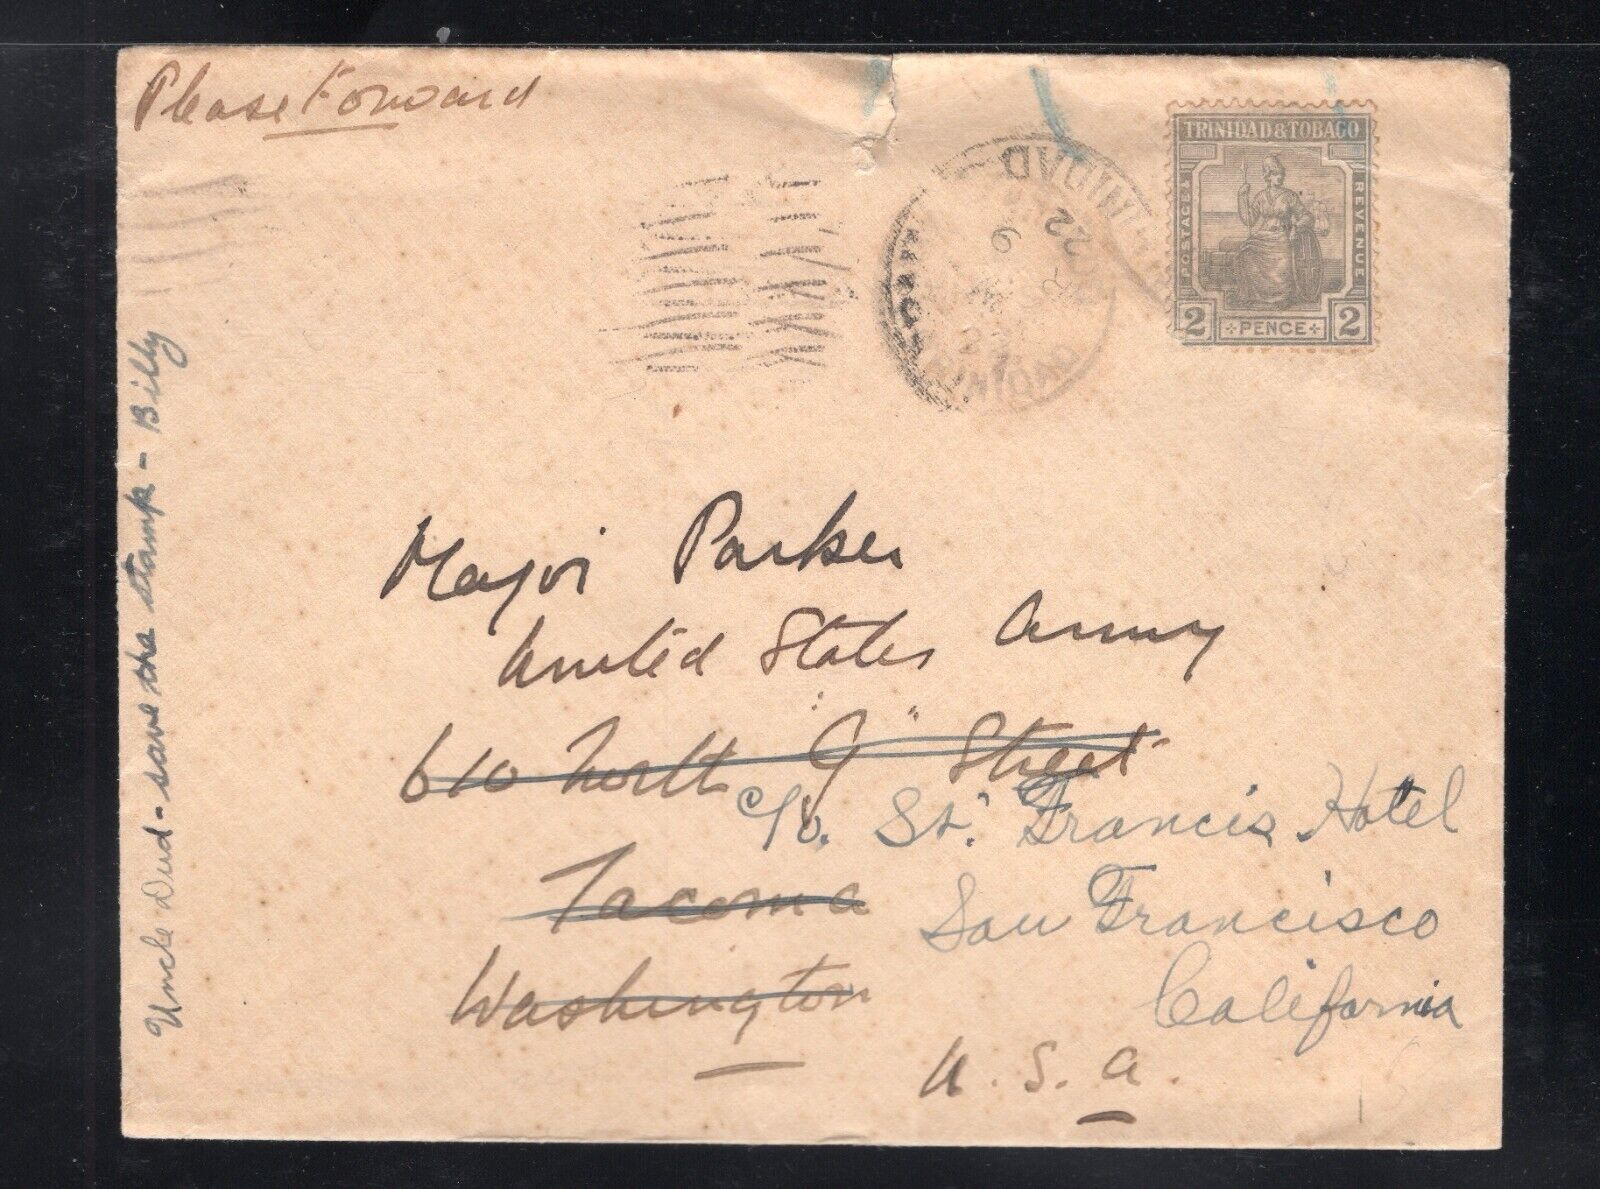 Please Forward
TRINIDAD & TOBAGO
POSTAGE &
REVENUE
2 PENCE 2
TRINIDAD
22
9
TRINIDAD
Uncle Dud - save the stamp - Billy
Major Parker
United States Army
610 North "J" Street
c/o. St. Francis Hotel
Tacoma
San Francisco
Washington
California
U. S. A.